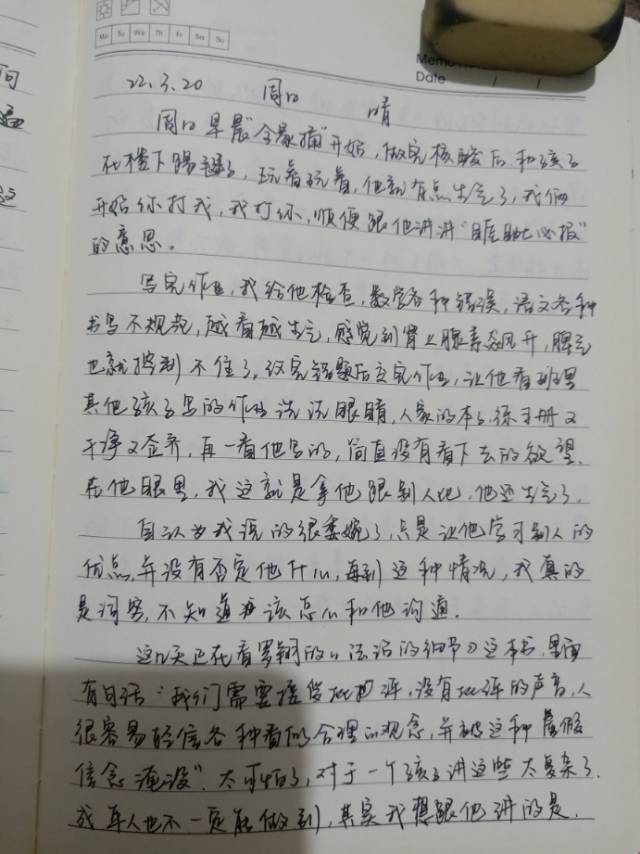 Mo Tu We Th Fr Sa Su
Memo No.
Date / /
22.3.20 周日 晴
周日早晨"全家捅"开始,做完核酸后和孩子
在楼下踢毽子,玩着玩着,他就有点生气了,我们
开始你打我,我打你,顺便跟他讲讲"睚眦必报"
的意思。
写完作业,我给他检查,数学各种错误,语文各种
书写不规范,越看越生气,感觉到肾上腺素飙升,脾气
也就控制不住了,改完错题后交完作业,让他看班里
其他孩子写的作业洗洗眼睛,人家的本子练习册又
干净又整齐,再一看他写的,简直没有看下去的欲望。
在他眼里,我这就是拿他跟别人比,他还生气了。
自认为我说的很委婉了,只是让他学习别人的
优点,并没有否定他什么,每到这种情况,我真的
是词穷,不知道该怎么和他沟通。
这几天正在看罗翔的《法治的细节》这本书,里面
有句话"我们需要接受批评,没有批评的声音,人
很容易轻信各种看似合理的观念,并被这种虚假
信念淹没"。太可怕了,对于一个孩子讲这些太复杂了,
成年人也不一定能做到,其实我想跟他讲的是,